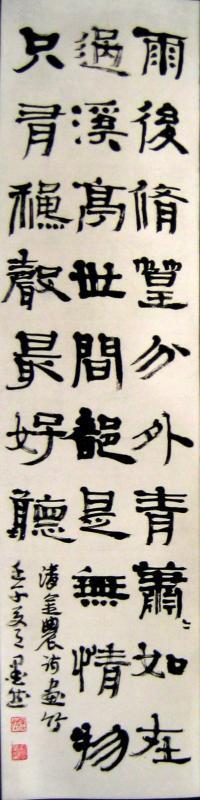 雨後脩篁分外青蕭〻如在
過溪亭世間都是無情物
只有穐聲最好聽
清金農詩畫竹
壬子